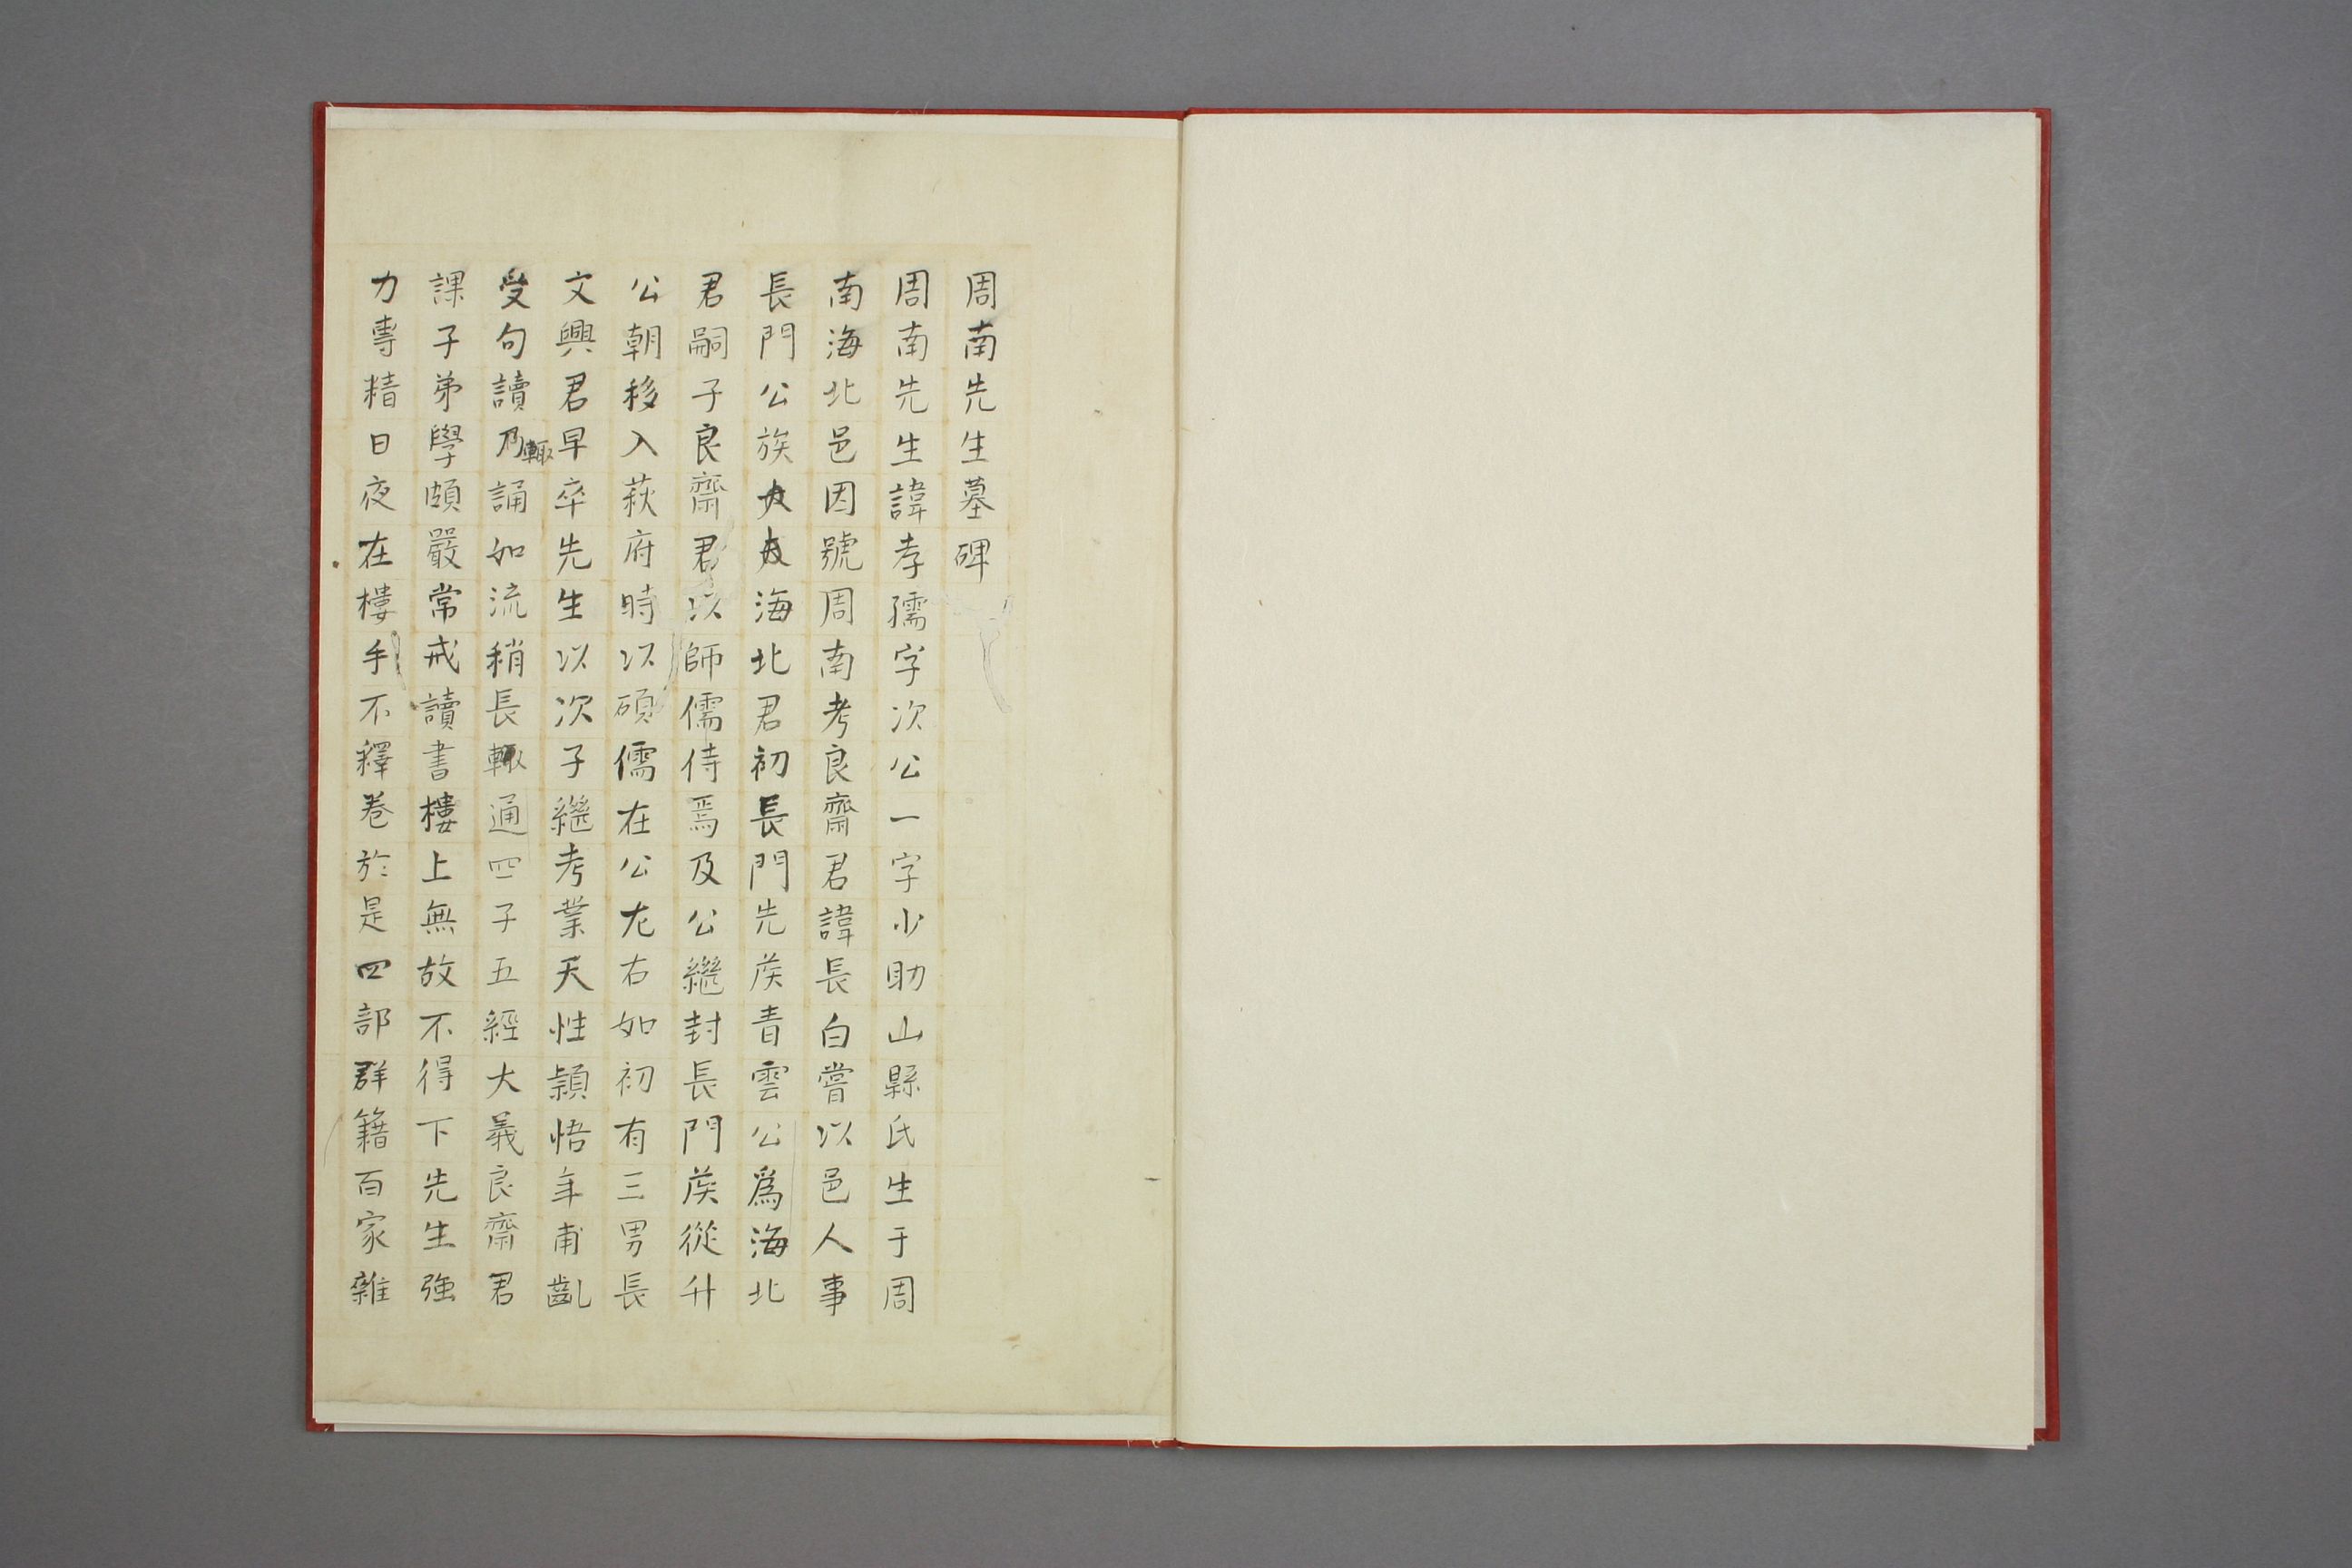 周南先生墓碑
周南先生諱孝孺字次公一字少助山縣氏生于周
南海北邑因號周南考良齋君諱長白嘗以邑人事
長門公族大夫海北君初長門先侯青雲公爲海北
君嗣子良齋君以師儒侍焉及公繼封長門侯從升
公朝移入萩府時以碩儒在公左右如初有三男長
文興君早卒先生以次子繼考業天性頴悟年甫齔
受句讀乃輙誦如流稍長輙通四子五經大義良齋君
課子弟學頗嚴常戒讀書樓上無故不得下先生強
力專精日夜在樓手不釋卷於是四部群籍百家雜